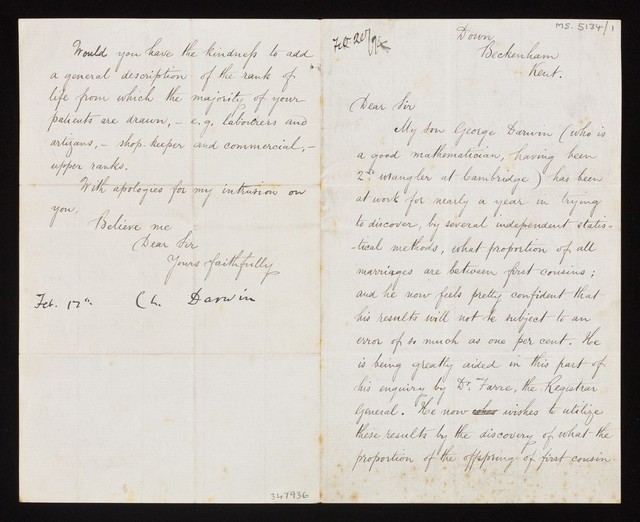 MS. 5134/1
Down,
Beckenham
Kent.
Dear Sir
My son George Darwin (who is
a good mathematician, having been
2nd wrangler at Cambridge) has been
at work for nearly a year in trying
to discover, by several independent statis-
-tical methods, what proportion of all
marriages are between first cousins;
and he now feels pretty confident that
his results will not be subject to an
error of so much as one per cent. He
is being greatly aided in this part of
his enquiry by Dr. Farre, the Registrar
General. He now wishes to utilize
these results by the discovery of what the
proportion of the offspring of first cousin
Feb. 20/74
Would you have the kindness to add
a general description of the rank of
life from which the majority of your
patients are drawn, – e.g. labourers and
artizans, – shop-keeper and commercial, –
upper ranks.
With apologies for my intrusion on
you,
Believe me
Dear Sir
Yours faithfully
Feb. 17th. Ch. Darwin
347936